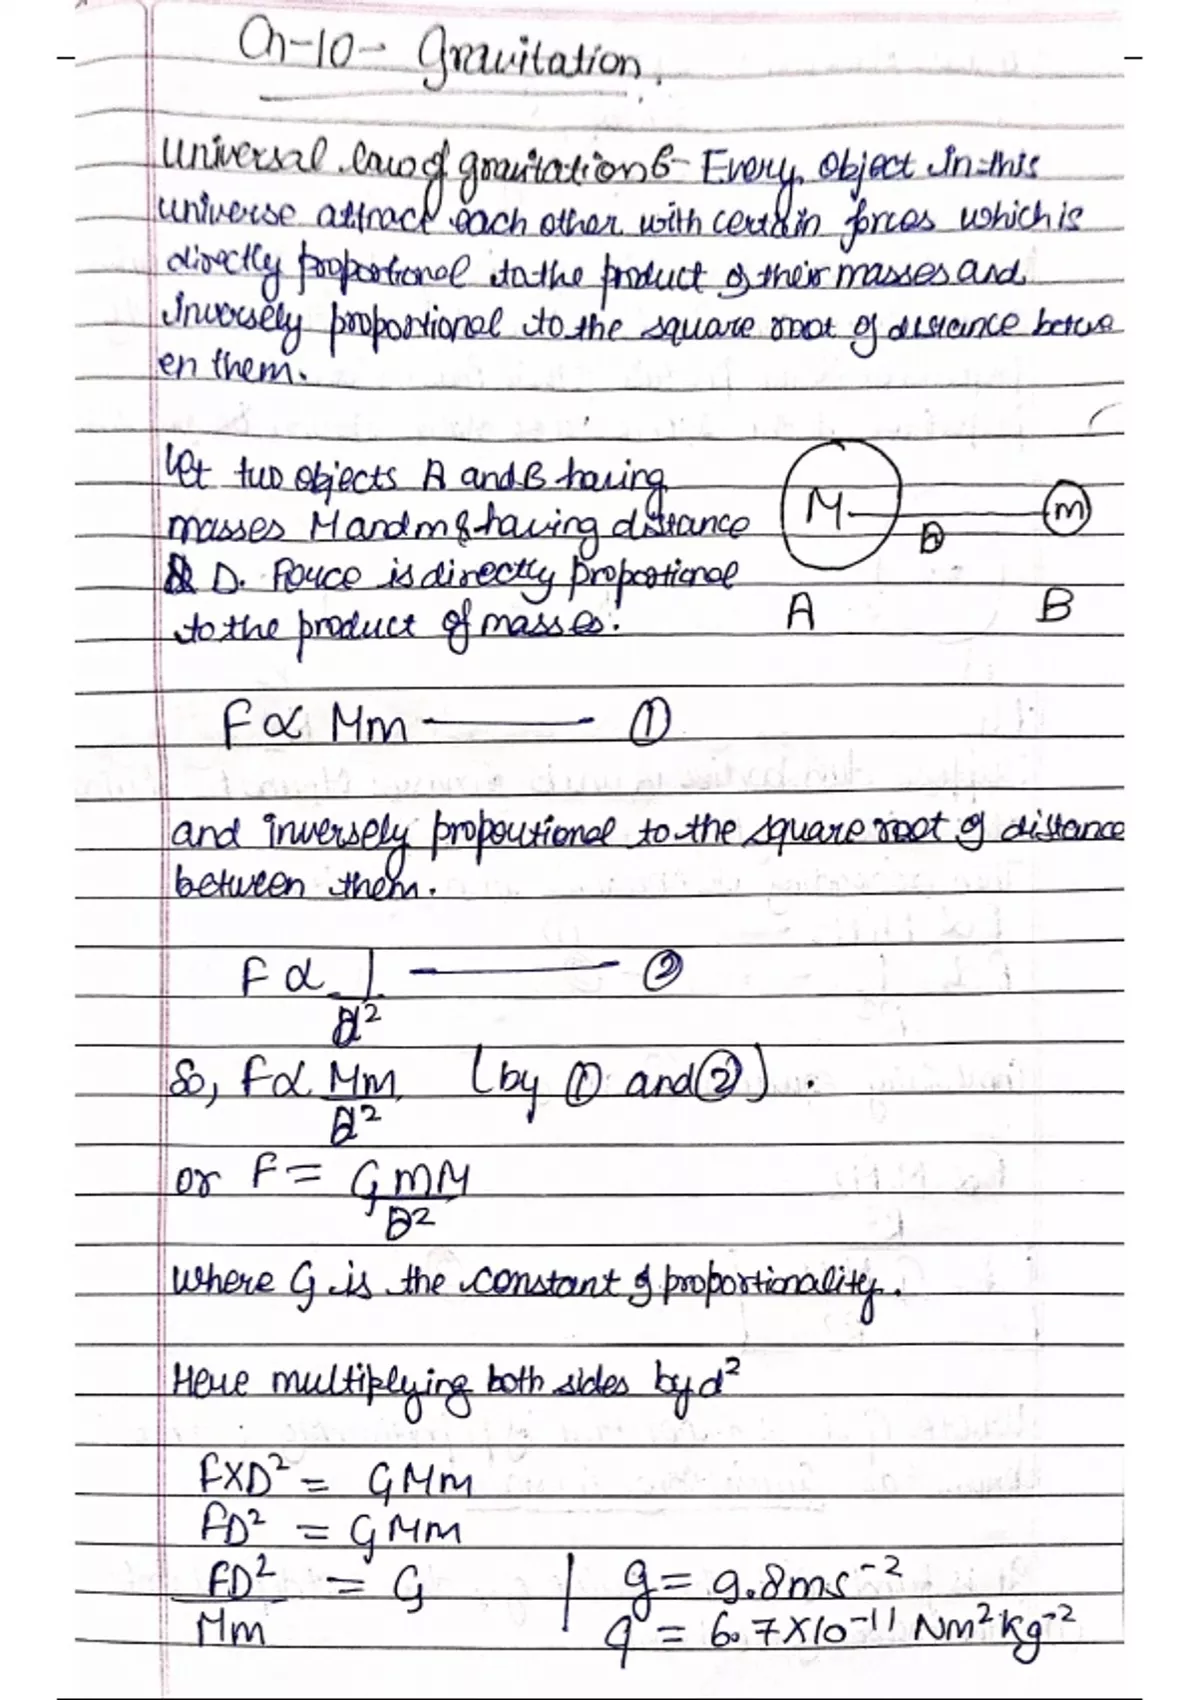 Ch-10- Gravitation.
Universal law of gravitation:- Every object in this
universe attract each other with certain forces which is
directly proportional to the product of their masses and
inversely proportional to the square root of distance betwe
en them.
Let two objects A and B having
masses M and m & having distance
D. Force is directly proportional
to the product of masses.
M D m
A B
F ∝ Mm ——— ①
and inversely proportional to the square root of distance
between them.
F ∝ 1 ——— ②
D²
So, F ∝ Mm (by ① and ②).
D²
or F = GmM
D²
where G is the constant of proportionality.
Here multiplying both sides by d²
FXD² = GMm
FD² = GMm
FD² = G | g = 9.8ms⁻²
Mm G = 6.7X10⁻¹¹ Nm²kg⁻²